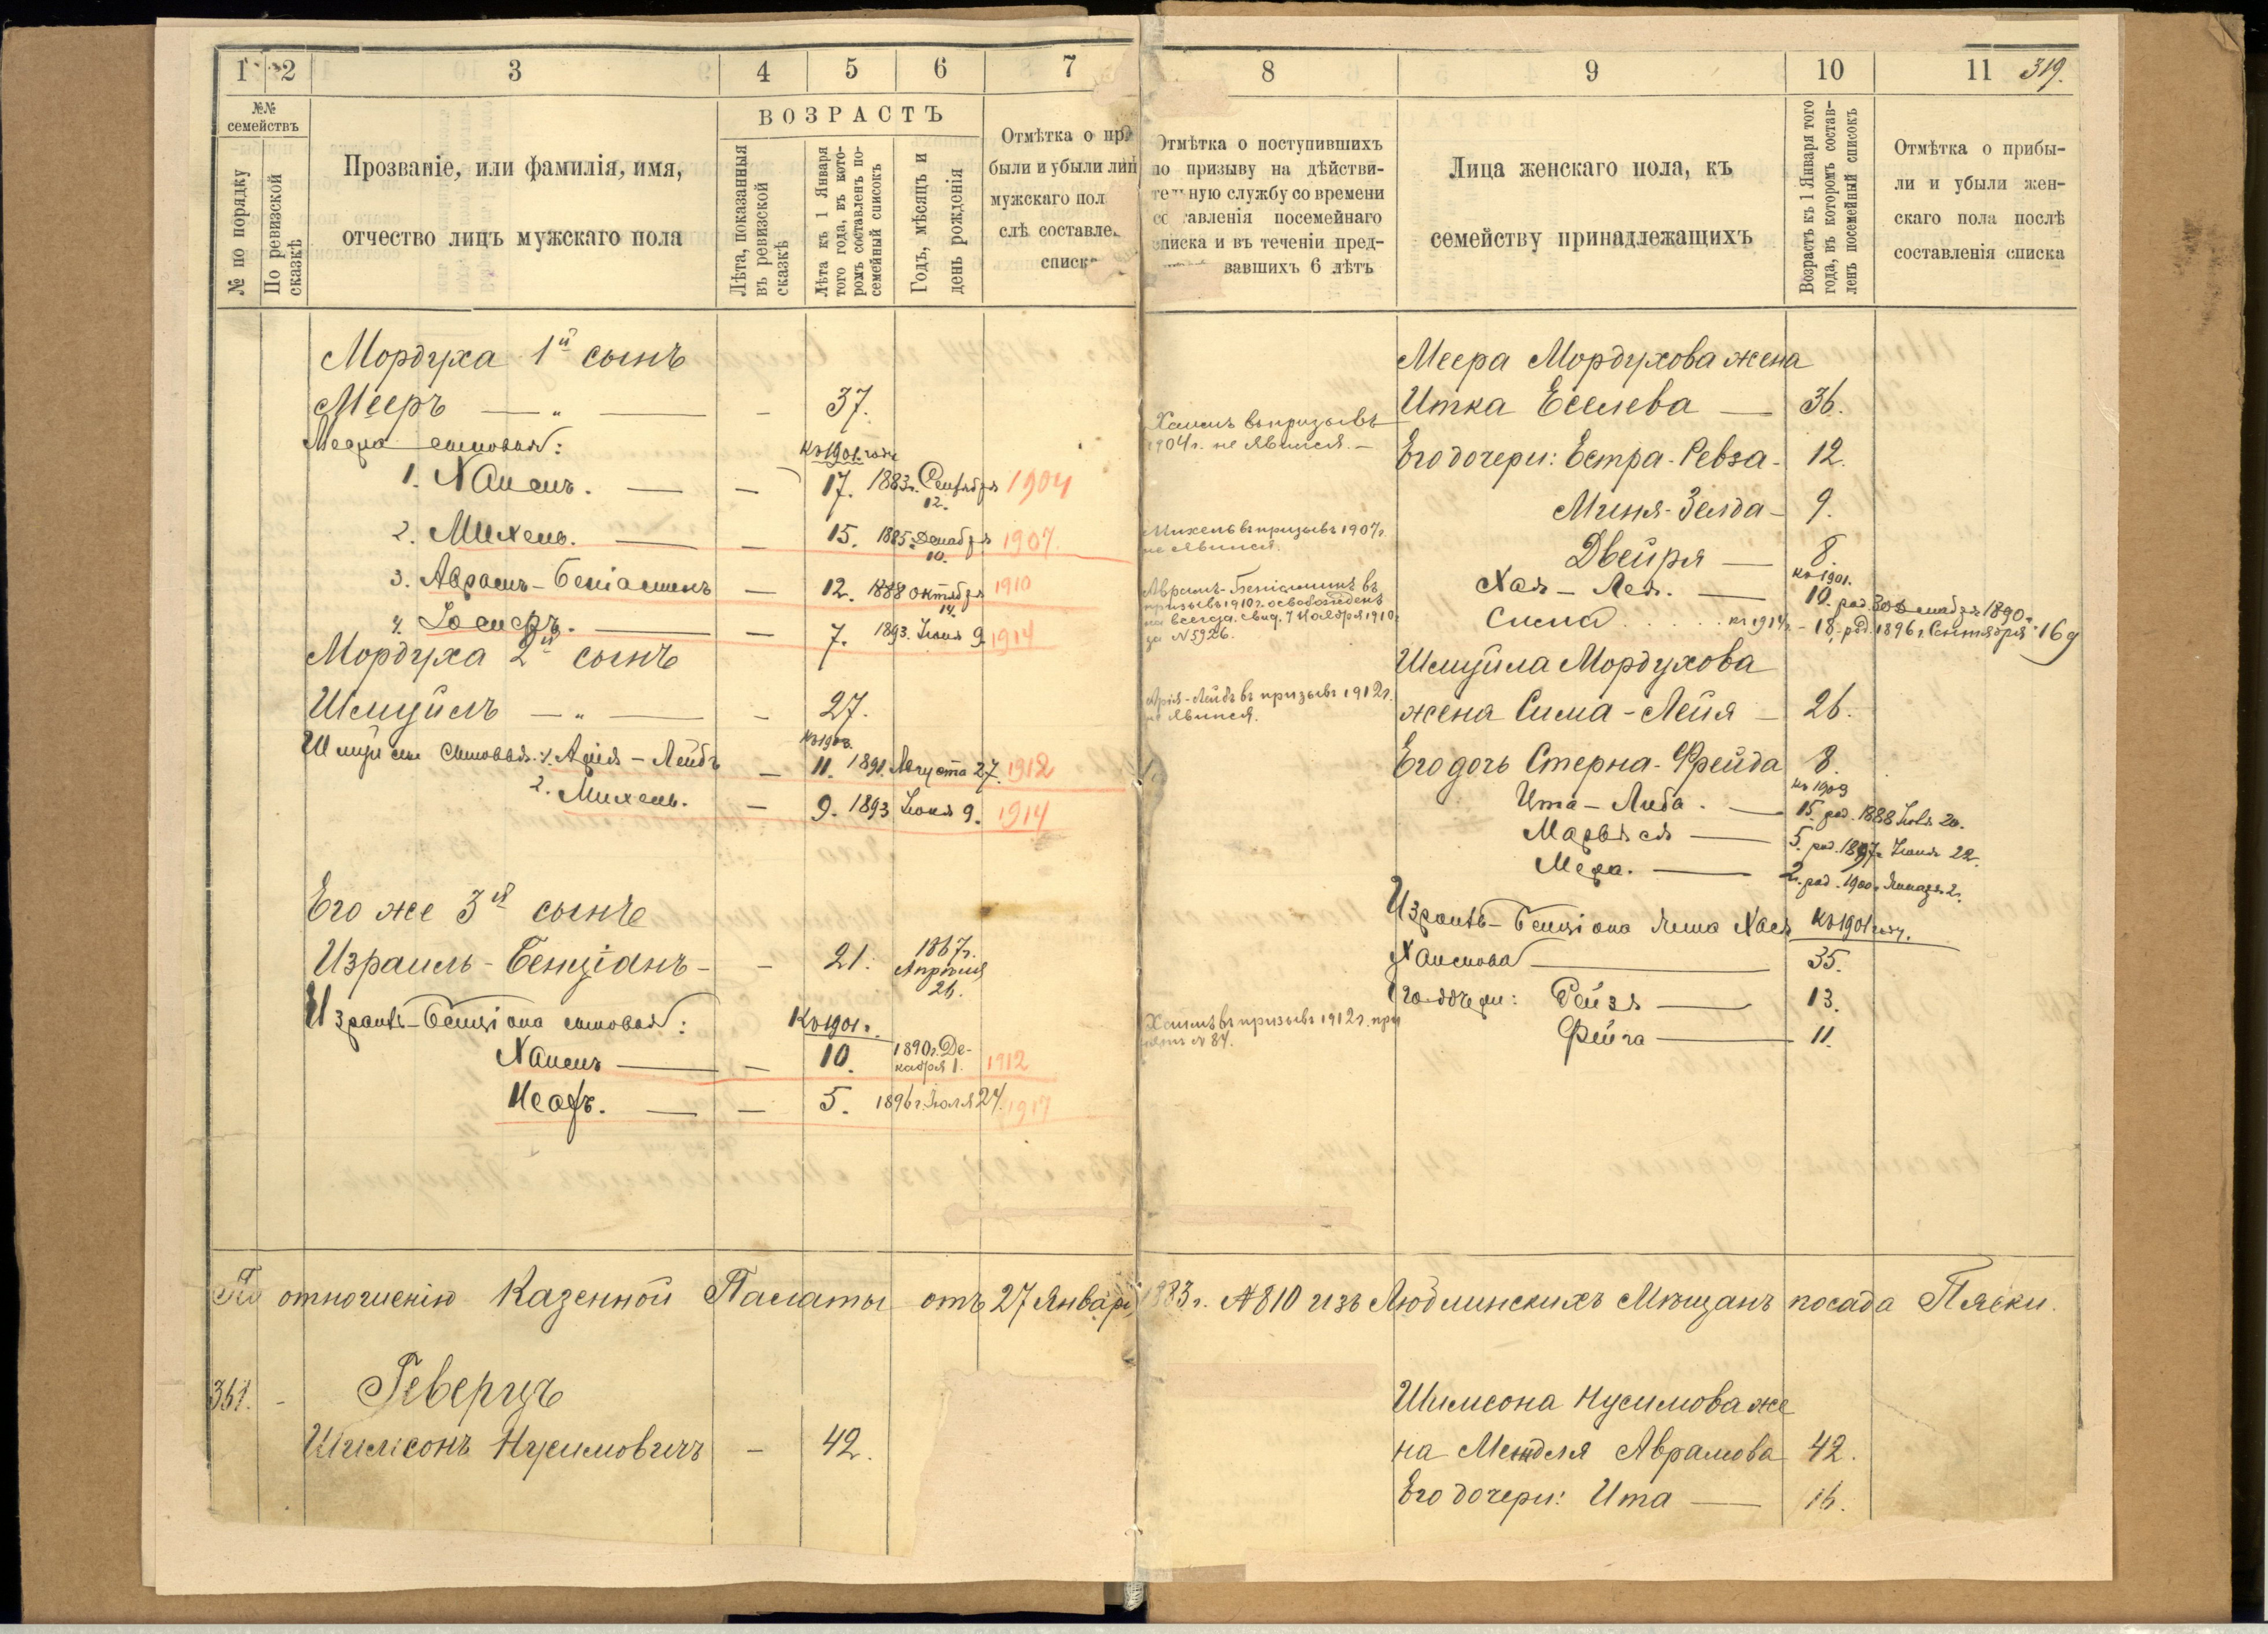 1 2 3 4 5 6 7
№№ семействъ
№ по порядку
По ревизской сказкѣ
Прозваніе, или фамилія, имя,
отчество лицъ мужскаго пола
ВОЗРАСТЪ
Лѣта, показанныя въ ревизской сказкѣ
Лѣта къ 1 Января того года, въ которомъ составленъ посемейный списокъ
Годъ, мѣсяцъ и день рожденія
Отмѣтка о при
были и убыли лиц
мужскаго пол
слѣ составле
списк
Мордуха 1й сынъ
Мееръ — „ — - 37.
Меера сыновья: къ 1901 году
1. Хаимъ. — — 17. 1883 г. Сентября 12. 1904
2. Михель. — — 15. 1885 г. Декабря 10. 1907.
3. Аврамъ-Беніаминъ — 12. 1888 октября 14. 1910
4. Іосифъ. — — 7. 1893. Іюня 9 1914
Мордуха 2й сынъ
Шмуйлъ — „ — - 27.
къ 1903.
Шмуйлы сыновья: 1. Арія-Лейбъ — 11. 1891. Августа 27. 1912
2. Михель. — 9. 1893 Іюня 9. 1914
Его же 3й сынъ
Израиль-Бенціанъ - - 21. 1867 г. Апрѣля 26.
Израиль-Бенціона сыновья: Къ 1901 г.
Хаимъ — — 10. 1890 г. Декабря 1. 1912
Іосифъ. — — 5. 1896 г. Іюля 24. 1917
8 9 10 11 319.
Отмѣтка о поступившихъ
по призыву на дѣйстви-
тельную службу со времени
составленія посемейнаго
списка и въ теченіи пред-
вавшихъ 6 лѣтъ
Лица женскаго пола, къ
семейству принадлежащихъ
Возрастъ къ 1 Января того года, въ которомъ составленъ посемейный списокъ
Отмѣтка о прибы-
ли и убыли жен-
скаго пола послѣ
составленія списка
Хаимъ въ призывъ
1904 г. не явился. —
Михель въ призывъ 1907 г.
не явился.
Аврамъ-Беніаминъ въ
призывъ 1910 г. освобожденъ
на всегда. Свид. 7 Ноября 1910 г.
за № 5926.
Арія-Лейбъ въ призывъ 1912 г.
не явился.
Хаимъ въ призывъ 1912 г. при
нятъ № 84.
Меера Мордухова жена
Итка Еселева — 36.
Его дочери: Естра-Ревза - 12.
Миня-Зелда - 9.
Двейря — 8.
къ 1901.
Хая-Лея. — 10. род. 30 Декабря 1890 г.
Сима . . . . къ 1914 г. - 18, род. 1896 г. Сентября 16 д
Шмуйла Мордухова
жена Сима-Лейя — 26.
Его дочь Стерна-Фрейда 8.
къ 1903
Ита-Либа. — 15. род. 1888 Іюля 20.
Марьяся — 5. род. 1897 г. Іюня 22.
Мера. — 2. род. 1900 г. Января 2.
Израиль-Бенціона жена Хася Къ 1901 году.
Хаимова — 35.
Его дочери: Рейзя — 13.
Фейга — 11.
По отношенію Казенной Палаты отъ 27 Январ 1883 г. № 810 изъ Люблинскихъ Мѣщанъ посада Пяски.
361. - Геверцъ
Шимсонъ Нусимовичъ - 42.
Шимсона Нусимова же
на Мендля Аврамова 42.
Его дочери: Ита — 16.